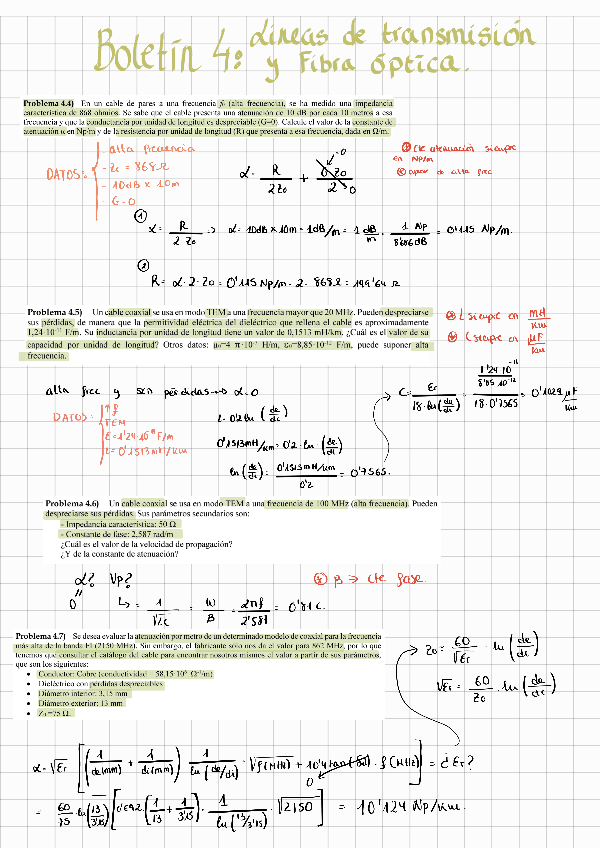 Boletín 4: Líneas de transmisión
y Fibra óptica.
Problema 4.4) En un cable de pares a una frecuencia f₀ (alta frecuencia), se ha medido una impedancia
característica de 868 ohmios. Se sabe que el cable presenta una atenuación de 10 dB por cada 10 metros a esa
frecuencia y que la conductancia por unidad de longitud es despreciable (G=0). Calcule el valor de la constante de
atenuación α en Np/m y de la resistencia por unidad de longitud (R) que presenta a esa frecuencia, dada en Ω/m.
DATOS:
- alta frecuencia
- Zc = 868Ω
- 10dB x 10m
- G=0
α = R / 2Z0 + G Z0 / 2
① Cte atenuación siempre
en Np/m
①
α = R / 2 Z0 → α = 10dB x 10m = 1dB/m = 1 dB/m · 1 Np / 8'686dB = 0'115 Np/m.
②
R = α · 2 · Z0 = 0'115 Np/m · 2 · 868Ω = 199'64 Ω
Problema 4.5) Un cable coaxial se usa en modo TEM a una frecuencia mayor que 20 MHz. Pueden despreciarse
sus pérdidas, de manera que la permitividad eléctrica del dieléctrico que rellena el cable es aproximadamente
1,24·10⁻¹¹ F/m. Su inductancia por unidad de longitud tiene un valor de 0,1513 mH/km. ¿Cuál es el valor de su
capacidad por unidad de longitud? Otros datos: μ₀=4·π·10⁻⁷ H/m, ε₀=8,85·10⁻¹² F/m, puede suponer alta
frecuencia.
L siempre en mH/km
C siempre en μF/km
alta frec y sen pérdidas → α=0
DATOS:
↑ f
TEM
ε = 1'24·10⁻¹¹ F/m
L = 0'1513 mH/km
L = 0'2 ln (de/di)
0'1513mH/km = 0'2 · ln (de/di)
ln (de/di) = 0'1513 mH/km / 0'2 = 0'7565.
C = εr / 18·ln(de/di) = 1'24·10⁻¹¹ / 8'85·10⁻¹² / 18·0'7565 = 0'1029 μF/km
Problema 4.6) Un cable coaxial se usa en modo TEM a una frecuencia de 100 MHz (alta frecuencia). Pueden
despreciarse sus pérdidas. Sus parámetros secundarios son:
- Impedancia característica: 50 Ω
- Constante de fase: 2,587 rad/m
¿Cuál es el valor de la velocidad de propagación?
¿Y de la constante de atenuación?
α? Vp?
β → cte fase.
0 ↳ = 1 / √LC = W / B = 2πf / 2'587 = 0'81 C.
Problema 4.7) Se desea evaluar la atenuación por metro de un determinado modelo de coaxial para la frecuencia
más alta de la banda FI (2150 MHz). Sin embargo, el fabricante sólo nos da el valor para 862 MHz, por lo que
tenemos que consultar el catálogo del cable para encontrar nosotros mismos el valor a partir de sus parámetros,
que son los siguientes:
• Conductor: Cobre (conductividad = 58,15·10⁶ Ω⁻¹/m)
• Dieléctrico con pérdidas despreciables
• Diámetro interior: 3,15 mm
• Diámetro exterior: 13 mm
• Z₀=75 Ω.
Z0 = 60 / √εr · ln (de/di)
√εr = 60 / Z0 · ln (de/di)
= ¿εr?
= 60/75 · ln(13/3'15) [0'692 · (1/13 + 1/3'15) · 1 / ln(13/3'15) · √2150] = 10'124 Np/km.